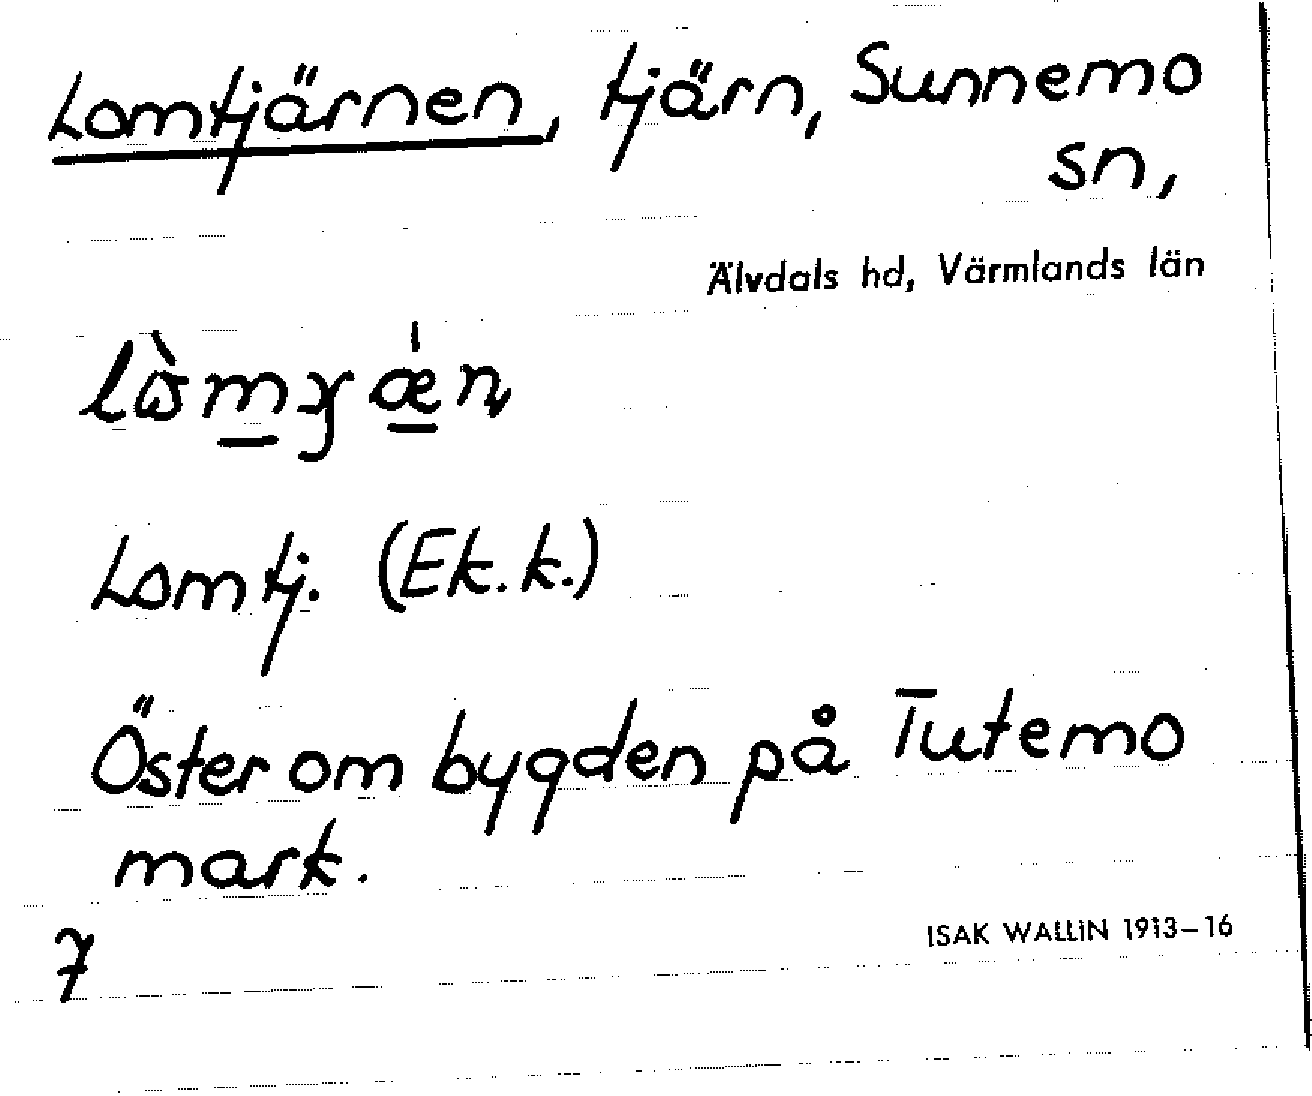 Lomtjärnen, tjärn, Sunnemo
sn,
Älvdals hd, Värmlands län
Lomtj. (Ek.k.)
Öster om bygden på Tutemo
mark.
7
ISAK WALLIN 1913–16